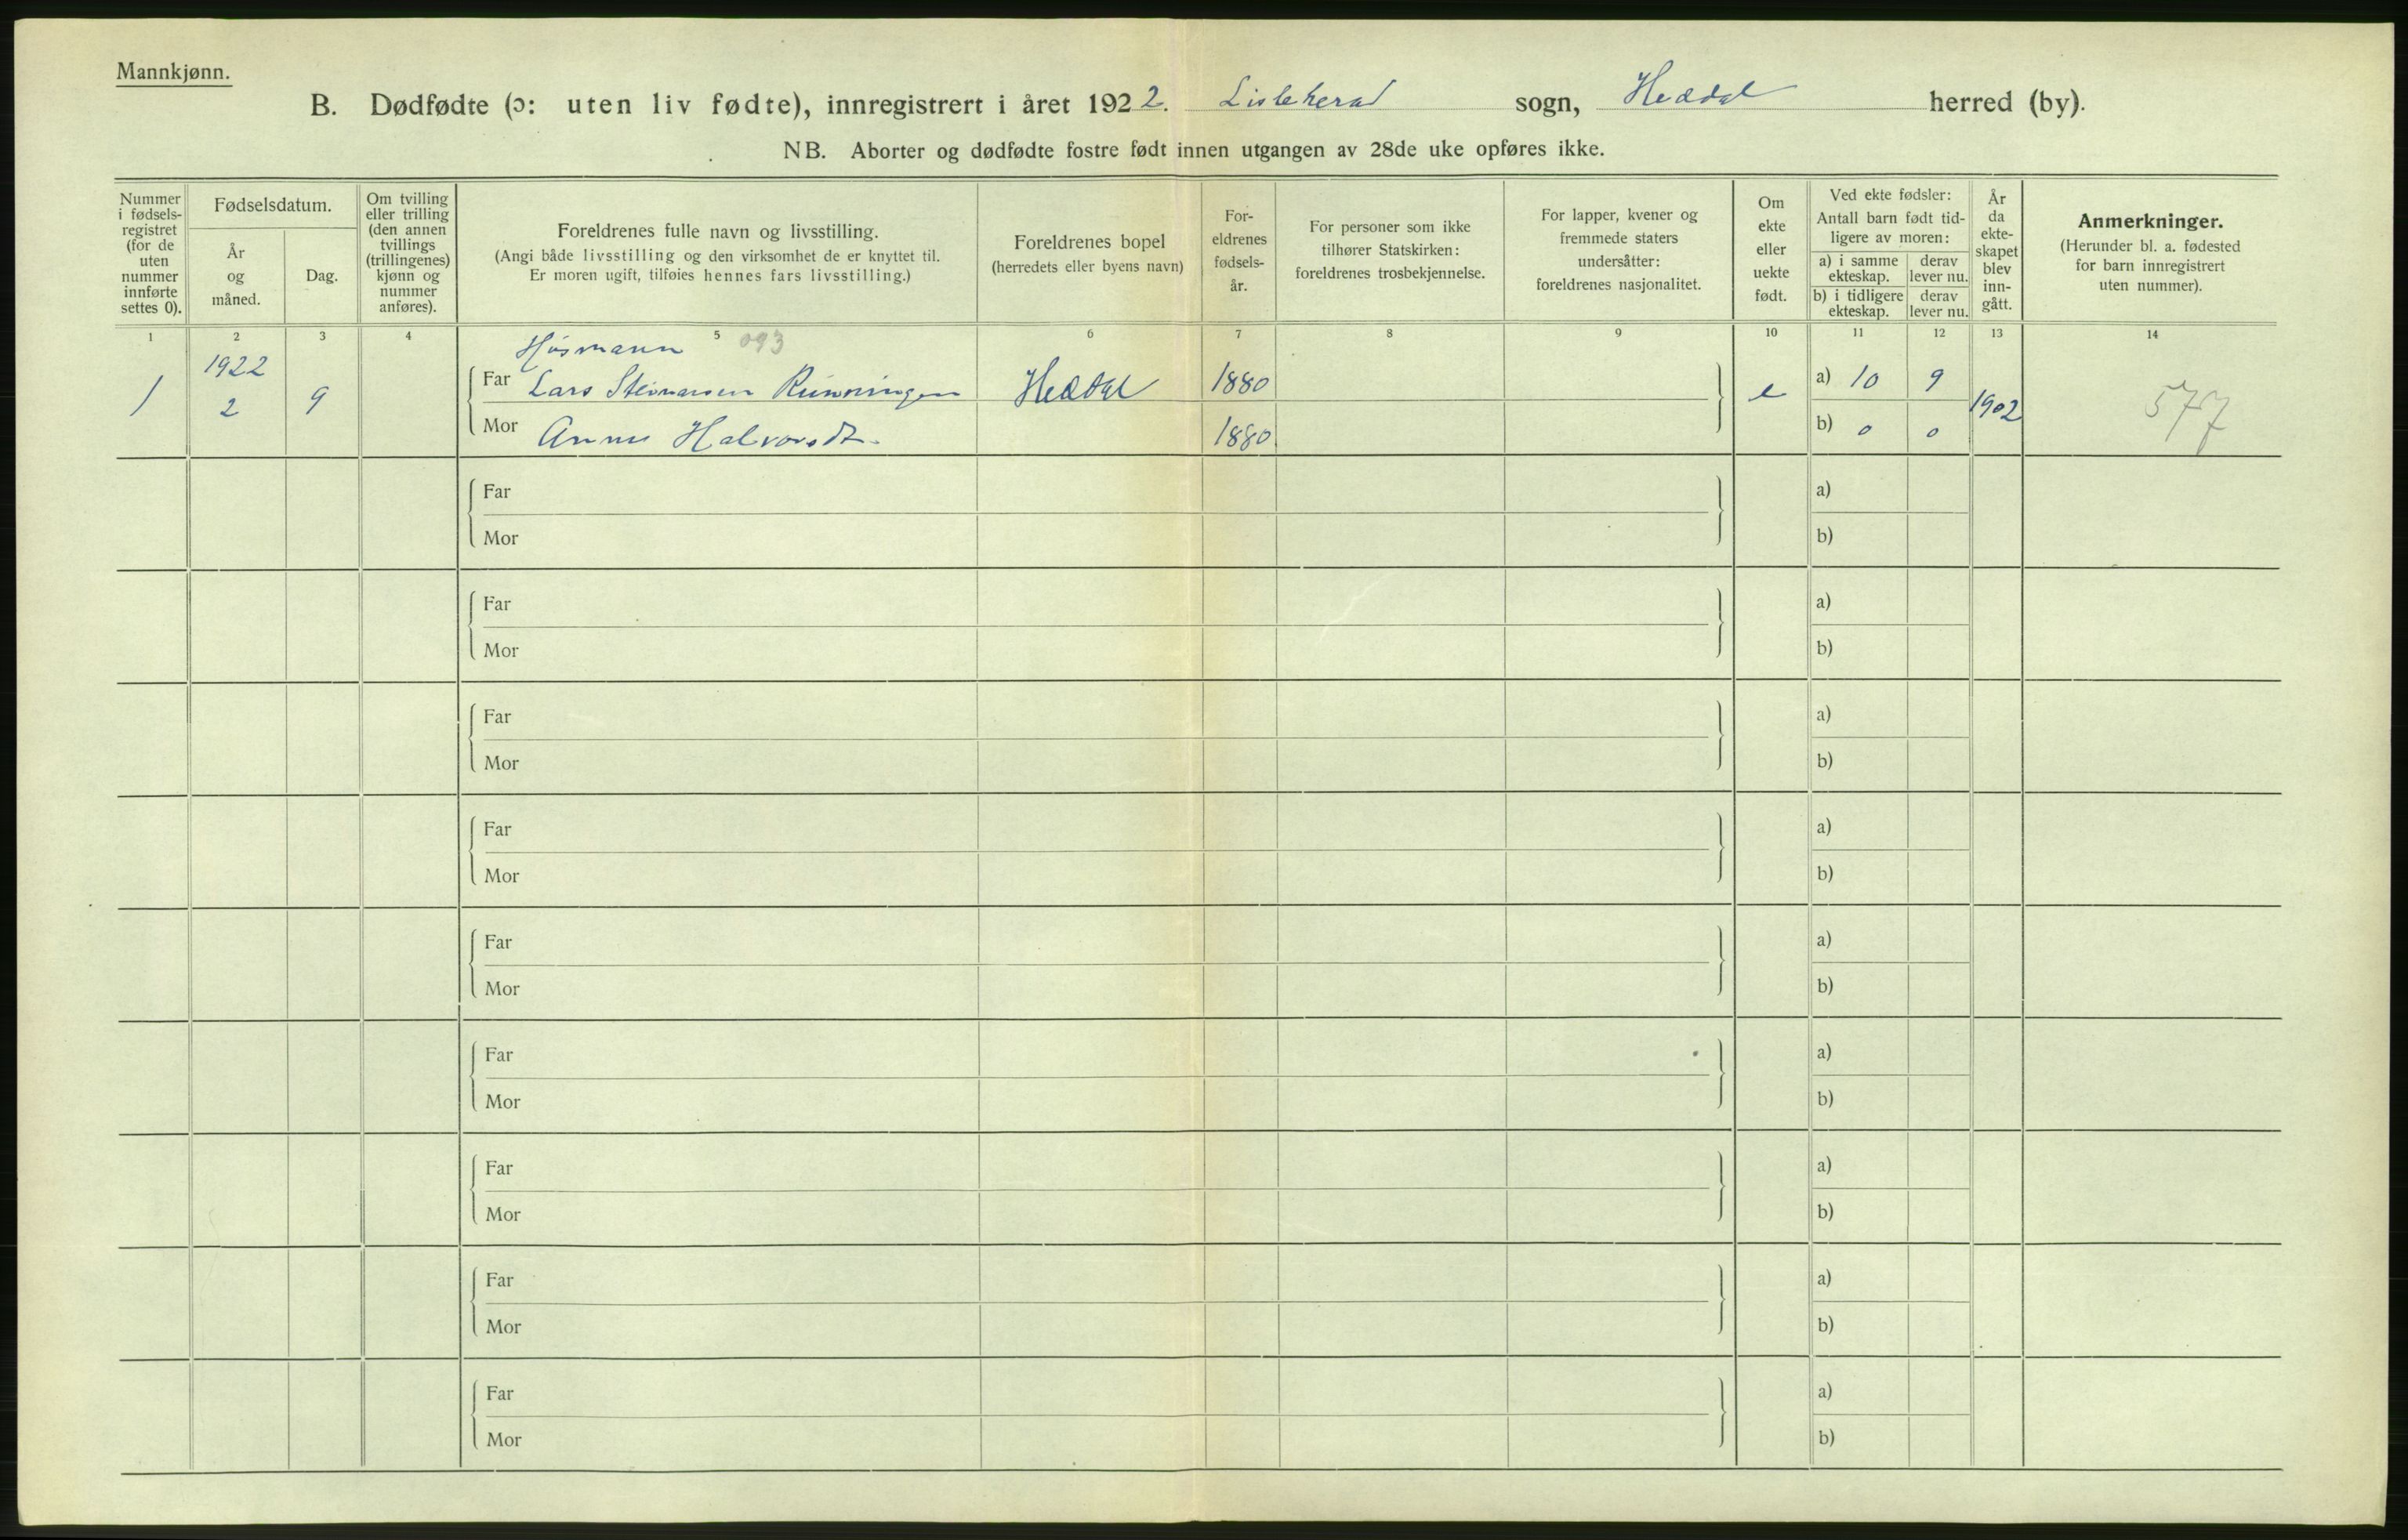 Mannkjønn.
B. Dødfødte (ɔ: uten liv fødte), innregistrert i året 1922. Lisleherad sogn, Heddal herred (by).
NB. Aborter og dødfødte fostre født innen utgangen av 28de uke opføres ikke.
Nummer i fødsels- registret (for de uten nummer innførte settes 0).
Fødselsdatum.
År og måned.
Dag.
Om tvilling eller trilling (den annen tvillings (trillingenes) kjønn og nummer anføres).
Foreldrenes fulle navn og livsstilling.
(Angi både livsstilling og den virksomhet de er knyttet til.
Er moren ugift, tilføies hennes fars livsstilling.)
Foreldrenes bopel
(herredets eller byens navn)
For- eldrenes fødsels- år.
For personer som ikke tilhører Statskirken: foreldrenes trosbekjennelse.
For lapper, kvener og fremmede staters undersåtter: foreldrenes nasjonalitet.
Om ekte eller uekte født.
Ved ekte fødsler:
Antall barn født tid- ligere av moren:
a) i samme ekteskap.
derav lever nu.
b) i tidligere ekteskap.
derav lever nu.
År da ekte- skapet blev inn- gått.
Anmerkninger.
(Herunder bl. a. fødested for barn innregistrert uten nummer).
1 2 3 4 5 6 7 8 9 10 11 12 13 14
Husmann 093
1 1922 2 9
Far Lars Steinarsen Runningen Heddal 1880 e a) 10 9 1902 577
Mor Anne Halvorsdt. 1880 b) 0 0
Far a)
Mor b)
Far a)
Mor b)
Far a)
Mor b)
Far a)
Mor b)
Far a)
Mor b)
Far a)
Mor b)
Far a)
Mor b)
Far a)
Mor b)
Far a)
Mor b)